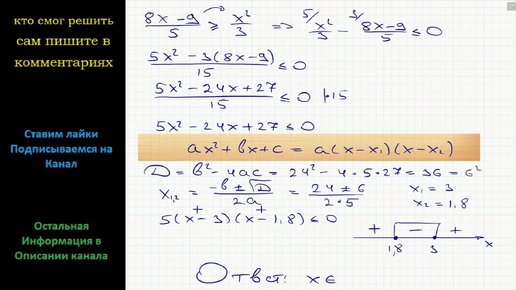 кто смог решить
сам пишите в
комментариях
Ставим лайки
Подписываемся на
Канал
Остальная
Информация в
Описании канала
(8x-9)/5 ≥ x²/3 => 5/ x²/3 - 3/ (8x-9)/5 ≤ 0
(5x² - 3(8x-9))/15 ≤ 0
(5x² - 24x + 27)/15 ≤ 0 |·15
5x² - 24x + 27 ≤ 0
ax² + bx + c = a(x-x₁)(x-x₂)
D = b² - 4ac = 24² - 4·5·27 = 36 = 6²
x₁,₂ = (-b ± √D)/2a = (24 ± 6)/(2·5) x₁ = 3
x₂ = 1,8
5(x-3)(x-1,8) ≤ 0
+ - +
1,8 3 x
Ответ: x ∈